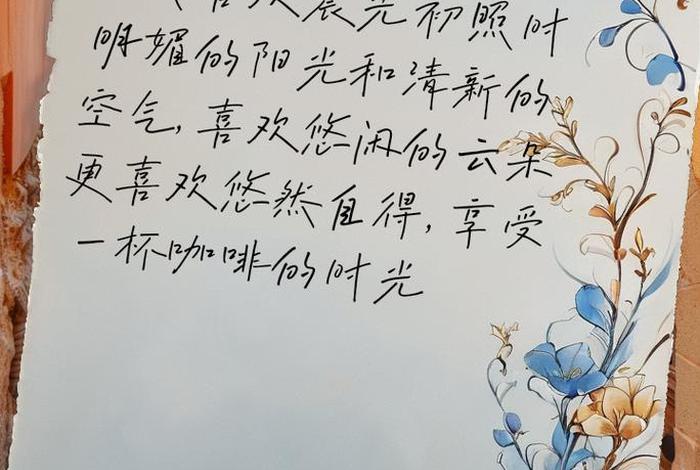 喜欢晨光初照时
明媚的阳光和清新的
空气,喜欢悠闲的云朵
更喜欢悠然自得,享受
一杯咖啡的时光